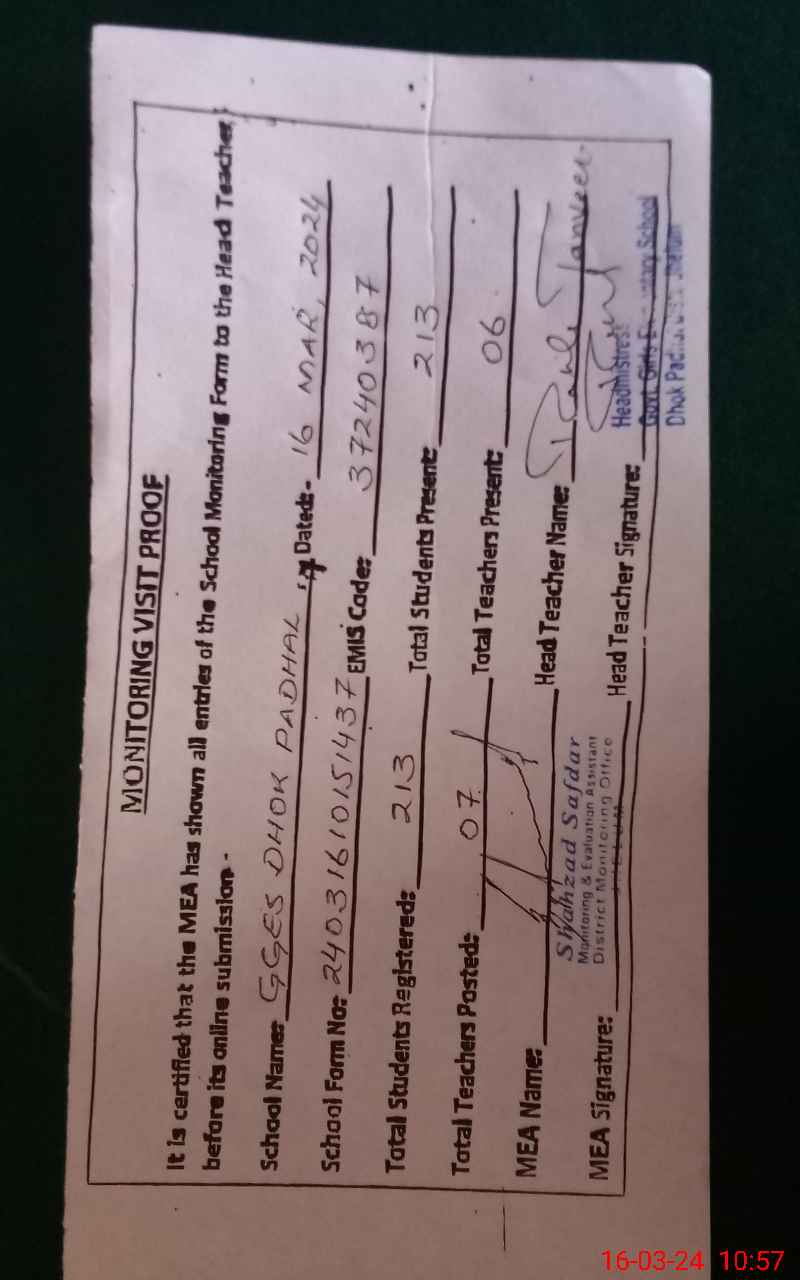 MONITORING VISIT PROOF
It is certified that the MEA has shown all entries of the School Monitoring Form to the Head Teacher
before its online submission -
School Name: GGES DHOK PADHAL Dated:- 16 MAR, 2024
School Form No: 24031610151437 EMIS Code: 37240387
Total Students Registered: 213 Total Students Present: 213
Total Teachers Posted: 07 Total Teachers Present: 06
MEA Name: Head Teacher Name: Tanveer
Shahzad Safdar
Monitoring & Evaluation Assistant
District Monitoring Office
JHELUM
MEA Signature: Head Teacher Signature:
Headmistress
Govt. Girls Elementary School
Dhok Padhal Distt. Jhelum
16-03-24 10:57